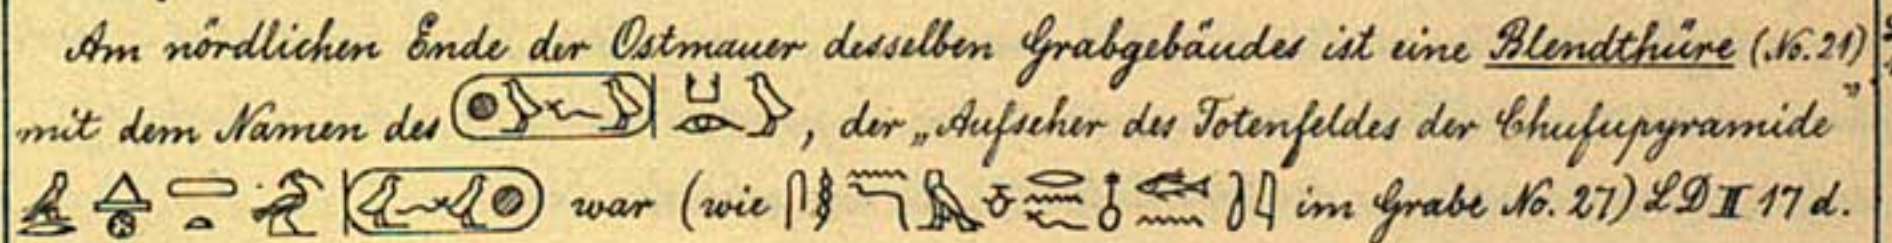 Am nördlichen Ende der Ostmauer desselben Grabgebäudes ist eine Blendthüre (No. 21)
mit dem Namen des , der „Aufseher des Totenfeldes der Chufupyramide”
war (wie im Grabe No. 27) LD II 17 d.